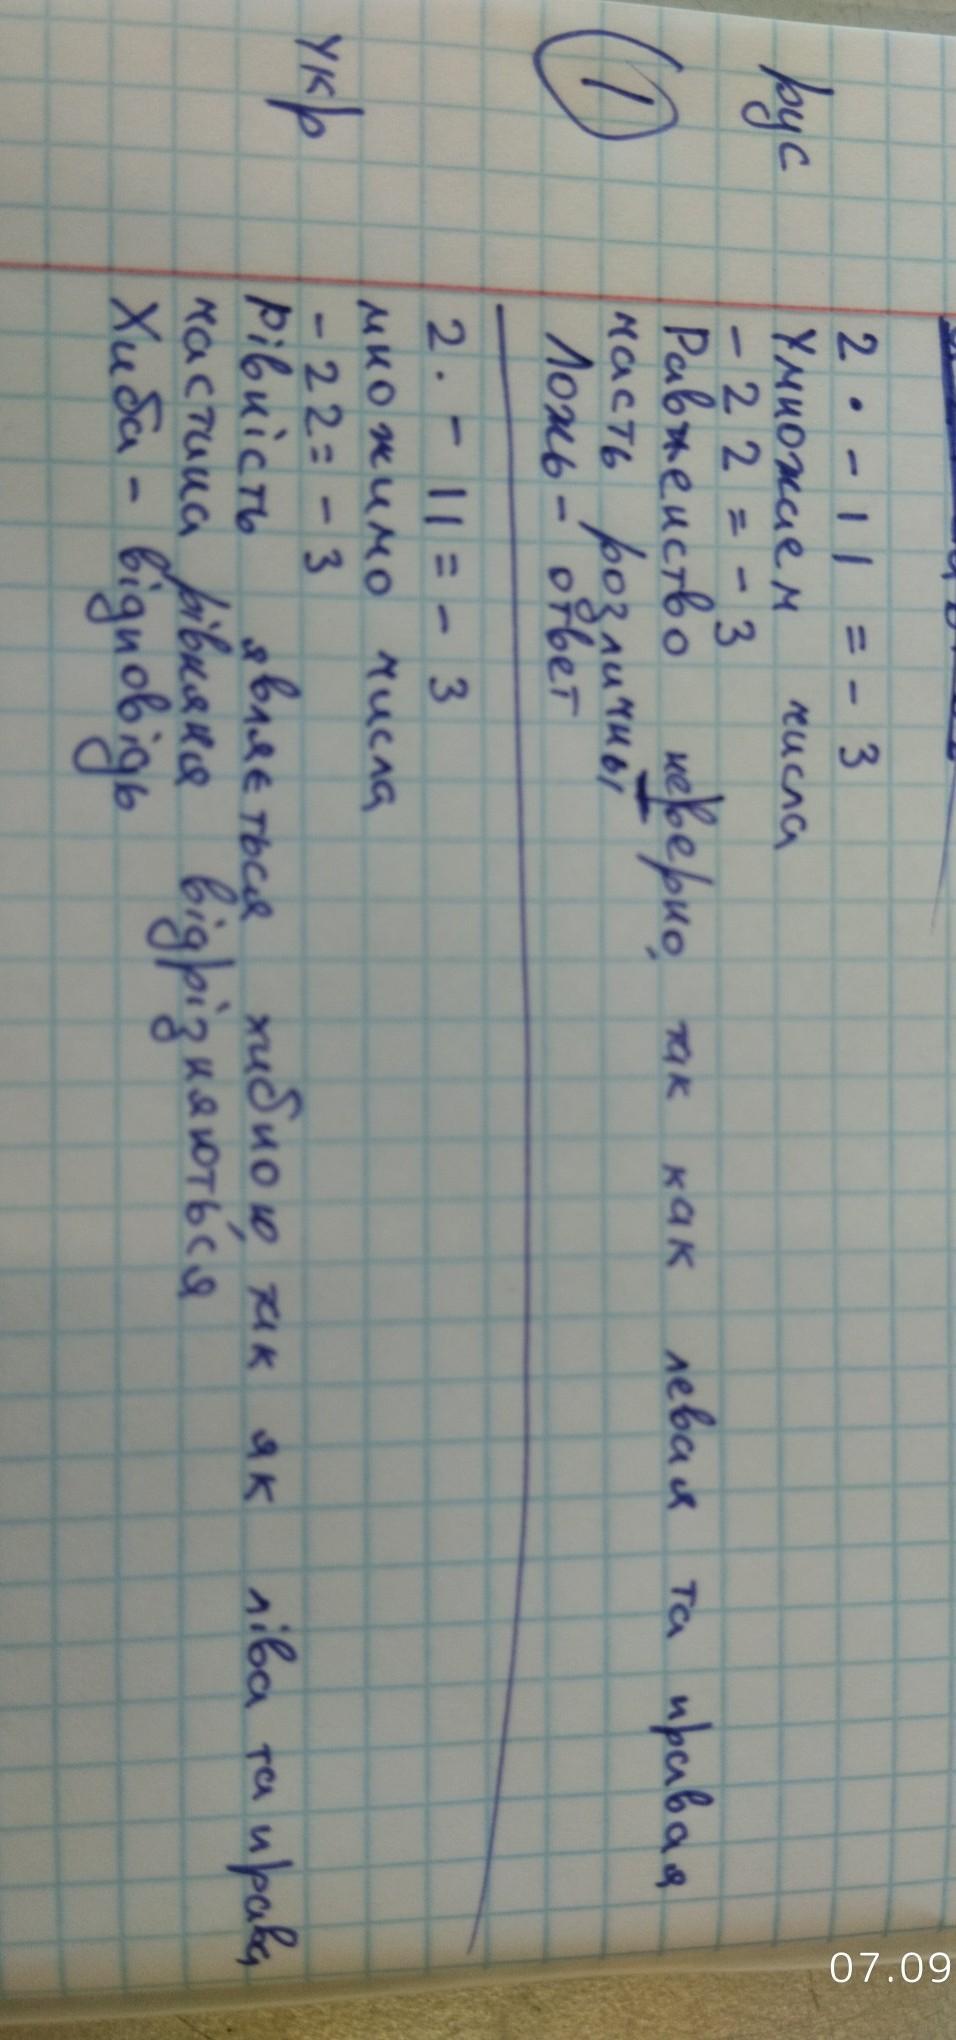 рус
2 · - 11 = - 3
Умножаем числа
- 22 = - 3
Равженство неверно, так как левая та правая
часть розличны
Ложь - ответ
1
укр
2 · - 11 = - 3
множимо числа
- 22 = - 3
Рівність являється хибною, так як ліва та права
частина рівняня відрізняються
Хиба - відповідь
07.09